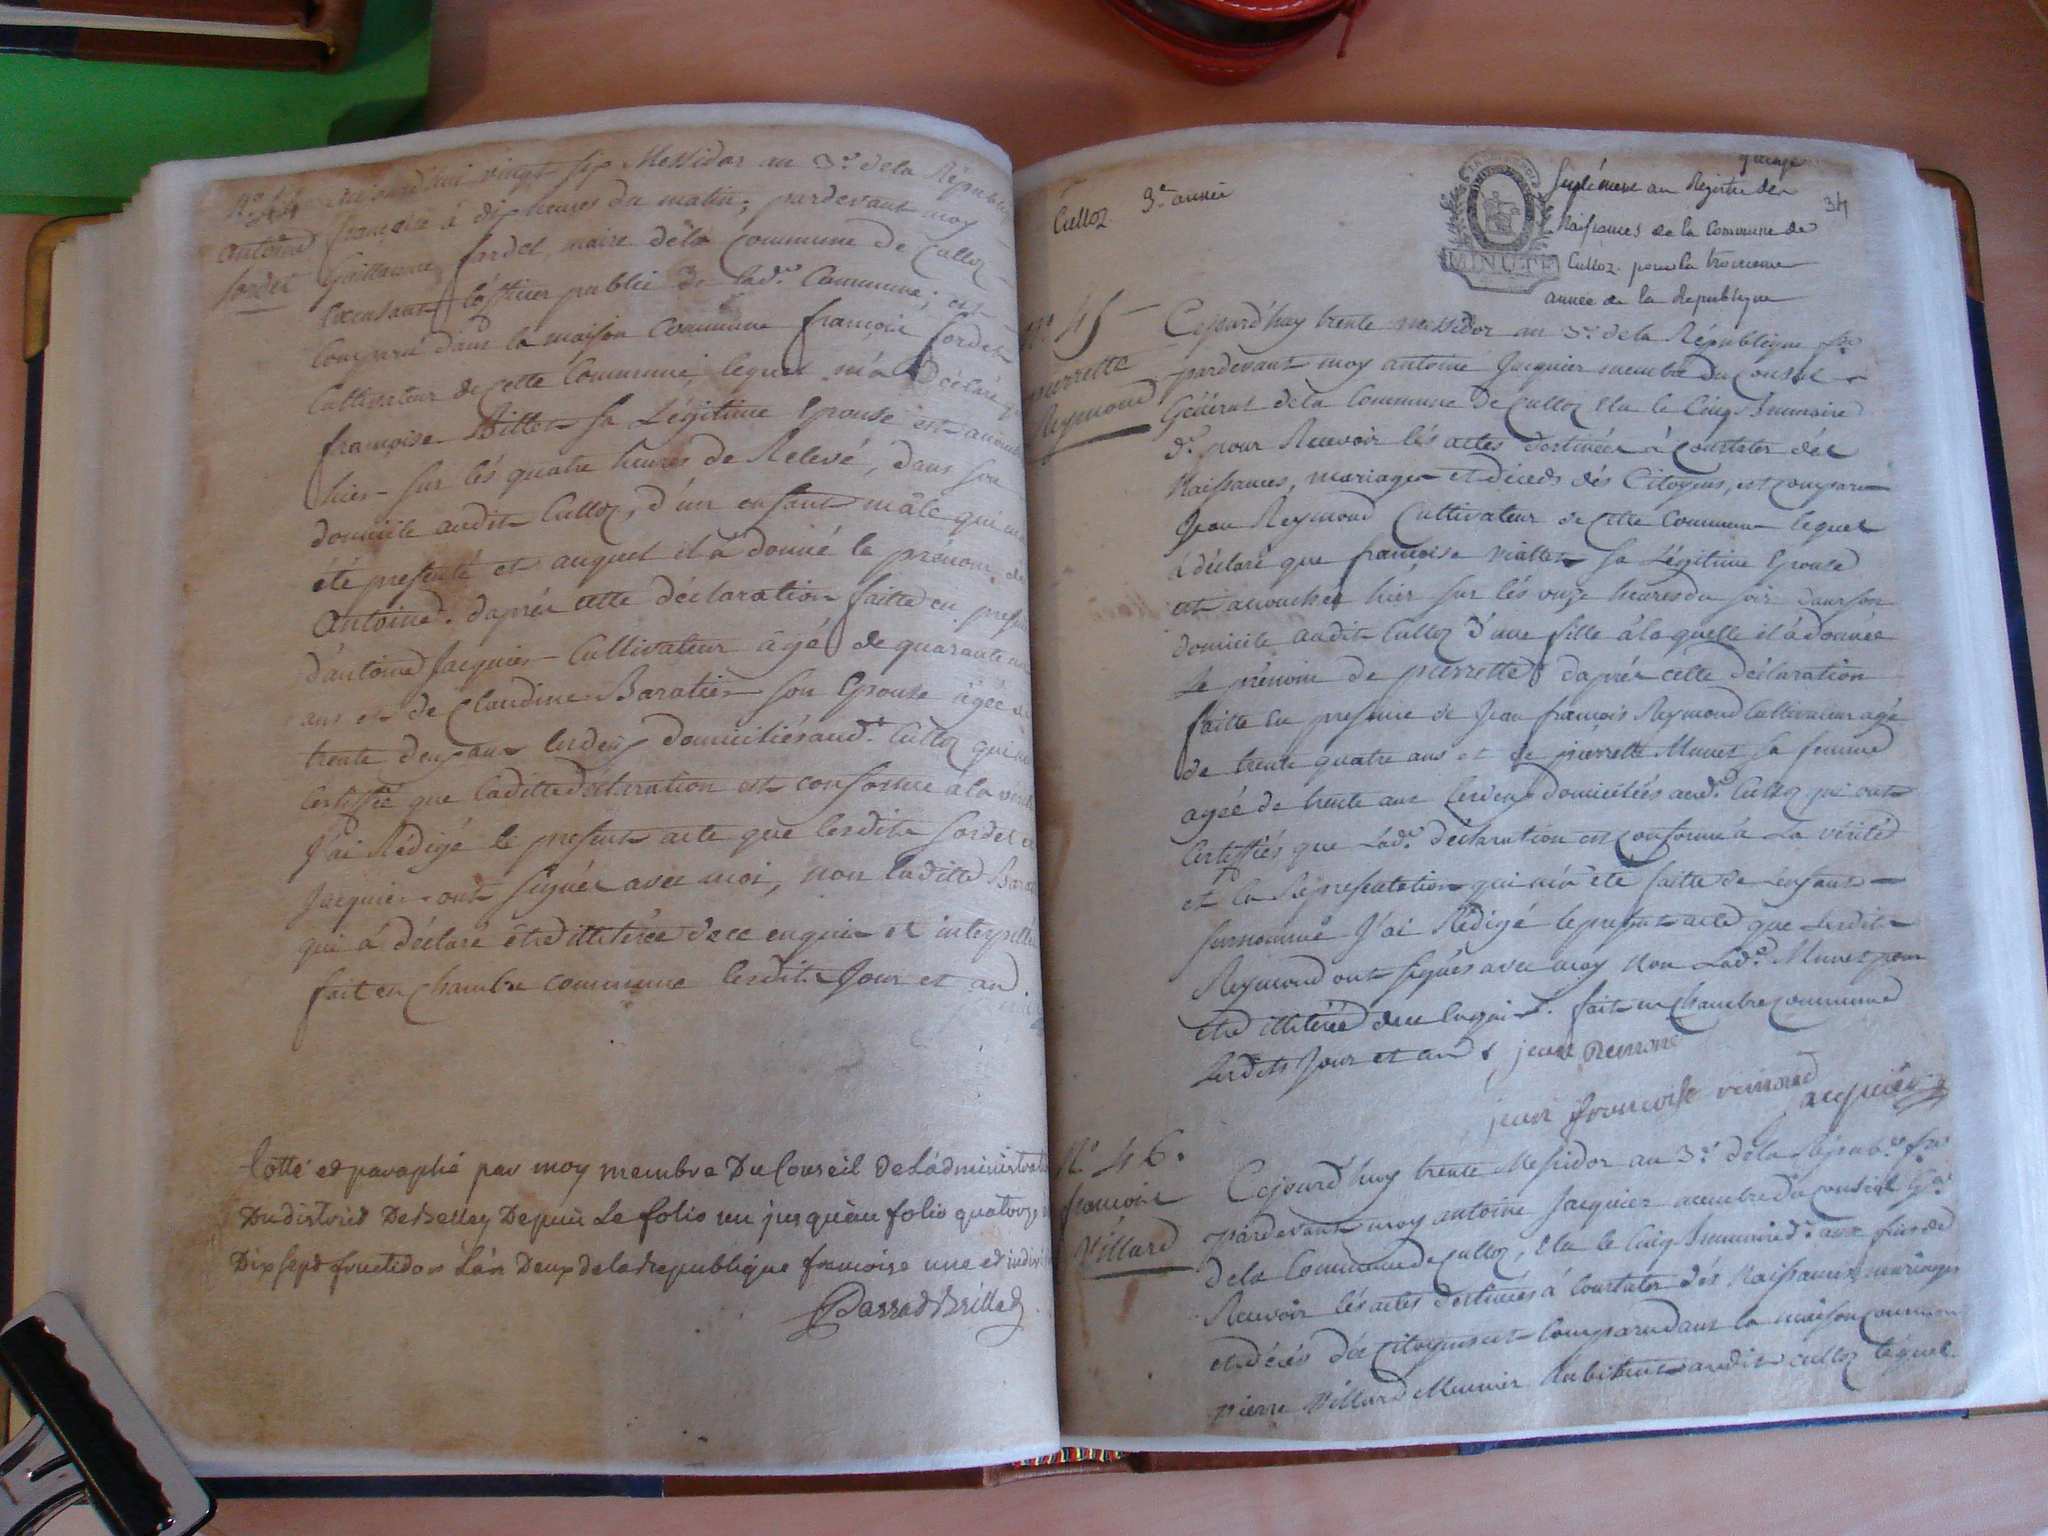 N.º 44
Antoine
Sordet
aujourd'hui vingt six Messidor an 3.e de la Républiq
française à dix heures du matin, pardevant moy
Guillaume Sordet, maire de la Commune de Culloz
l'officier public de lad.e Commune, est
Comparu dans la maison Commune françois Sordet
Cultivateur de cette Commune, lequel m'a déclaré q
françoise Billet sa Légitime Epouse est accouch
hier sur lés quatre heures de Relevé, dans son
domicile audit Culloz, d'un enfant mâle qui m'a
été presenté et auquel il à donné le prénom de
Antoine. daprés cette déclaration faitte en presen
d'antoine Jacquier Cultivateur âgé de quarante
ans et de Claudine Baratier son Epouse âgée de
trente deux ans lesdeux domiciliés aud.t Culloz qui
Certiffié que laditte déclaration est conforme à la verité
J'ai Rédigé le present acte que lesdits Sordet et
Jacquier ont signés avec moi, non laditte Bara
qui à déclaré être illiterée de ce enquis et interpellée
fait en Chambre commune lesdits Jour et an
Cotté et paraphé par moy membre Du Conseil de Ladministrat
Du district De Belley Depuis Le folio un jusqu'au folio quatorze
Dix sept fructidor L'an Deux de la republique francoise une et indivi
Passerat Brillat
Culloz 3.e année
quinze
34
MINUTE
Suplément au Registre des
Naissances de la Commune de
Culloz pour la troisieme
année de la Republique
N.º 45
pierrette
Reymond
Cejourd'huy trente messidor an 3.e de la République fr.se
pardevant moy antoine Jacquier membre du Conseil
Général de la Commune De Culloz Elu le Cinq Brumaire
d.r pour Recevoir lés actes destinées à Constater dés
Naissances, mariages et décéds dés Citoyens, est comparu
Jean Reymond Cultivateur de cette Commune lequel
à déclaré que françoise viallet sa Légitime Epouse
est accouchée hier sur lés onze heures du soir dans son
domicile audit Culloz d'une fille à laquelle il à donnée
Le prénom de pierrette daprés cette déclaration
faitte en presence de Jean françois Reymond Cultivateur agé
de trente quatre ans et de pierrette Munet sa femme
agée de trente ans lesdeux domiciliés aud.t Culloz qui ont
Certiffiés que Lad.e déclaration est conforme à La vérité
et la Représentation qui m'a été faitte de Lenfant
surnommé J'ai Rédigé le present acte que Lesdits
Reymond ont signés avec moy non Lad.e Munet pour
être illiterée de ce Enquis. fait en Chambre commune
Lesdits Jour et an jean Remond
jean francoise reimond
Jacquier
N.º 46.
francoise
Villard
Cejourd'huy trente Messidor an 3.e de la Répub.e fr.se
pardevant moy antoine Jacquier membre du conseil G.al
De la Commune de Culloz, Elu le Cinq Brumaire d.r aux fins de
Recevoir lés actes destinées à Constater dés Naissances, mariages
et décés dés Citoyens est Comparu dans la maison commun
pierre Villard Meunier habitant audit Culloz lequel